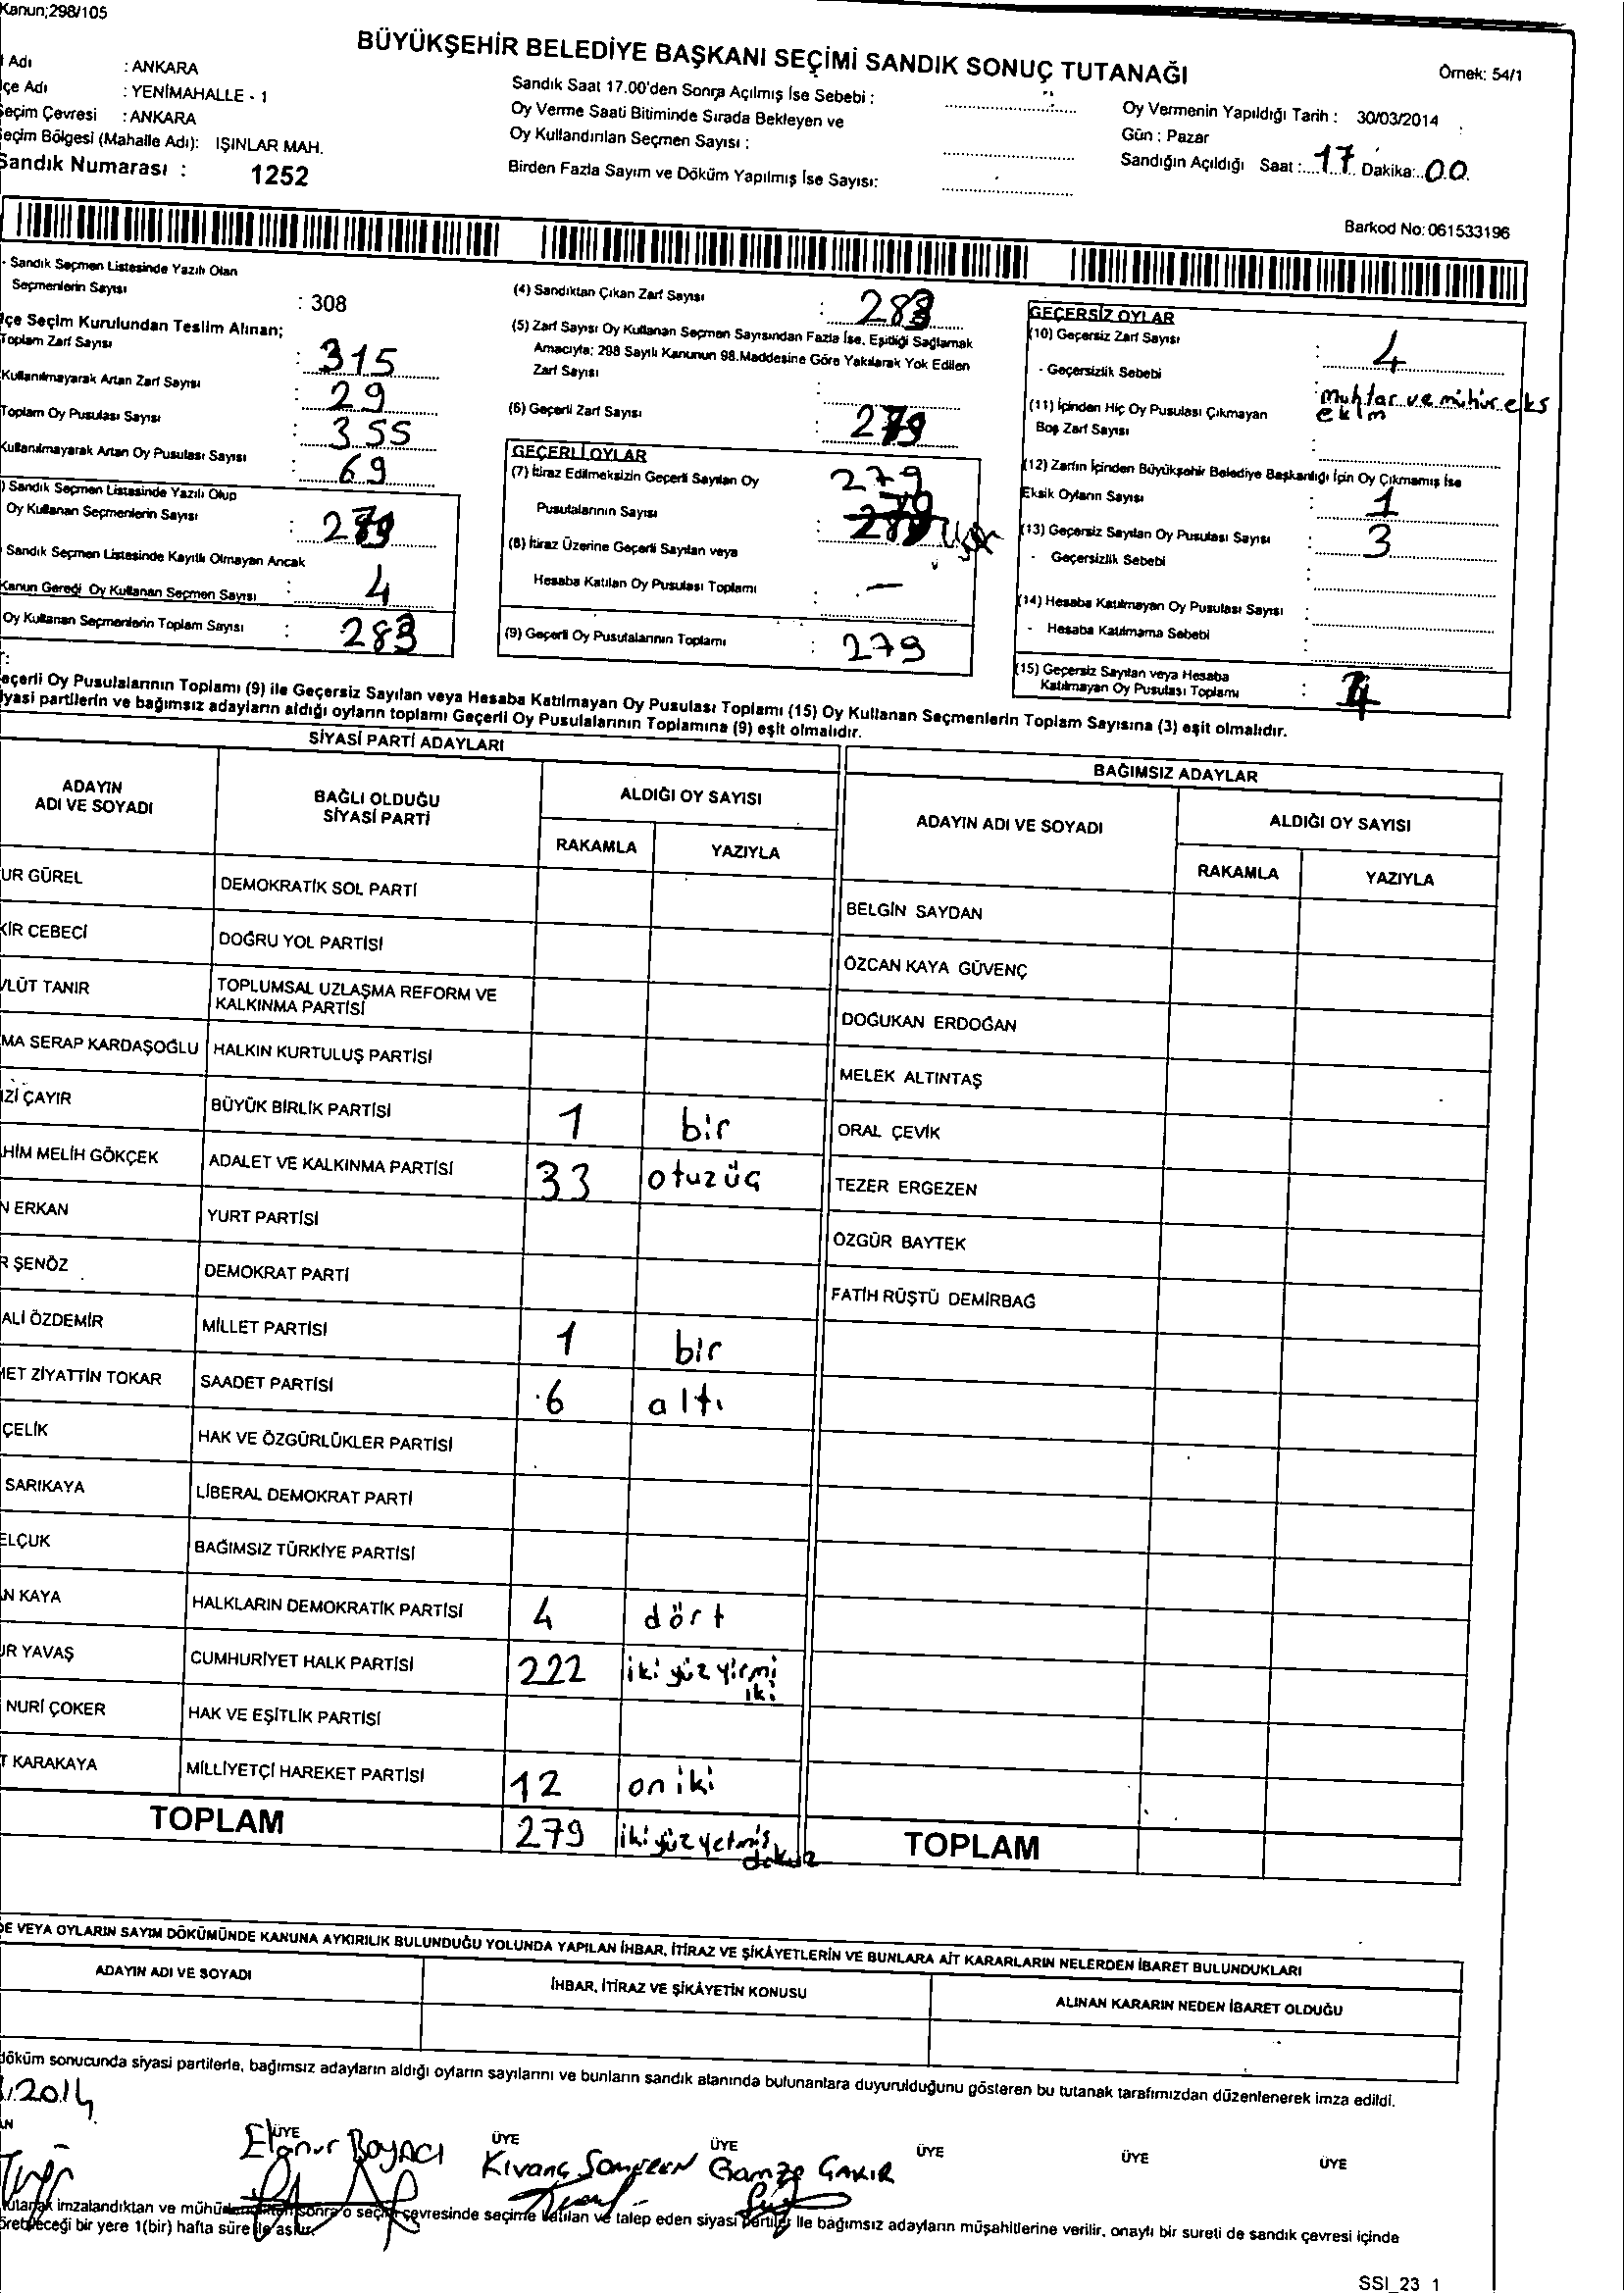 Kanun;298/105
BÜYÜKŞEHİR BELEDİYE BAŞKANI SEÇİMİ SANDIK SONUÇ TUTANAĞI
Örnek: 54/1
Adı : ANKARA
çe Adı : YENİMAHALLE - 1
Seçim Çevresi : ANKARA
Seçim Bölgesi (Mahalle Adı): IŞINLAR MAH.
Sandık Numarası : 1252
Sandık Saat 17.00'den Sonra Açılmış İse Sebebi :
Oy Verme Saati Bitiminde Sırada Bekleyen ve
Oy Kullandırılan Seçmen Sayısı :
Birden Fazla Sayım ve Döküm Yapılmış İse Sayısı:
Oy Vermenin Yapıldığı Tarih : 30/03/2014
Gün : Pazar
Sandığın Açıldığı Saat : 17 Dakika: 00
Barkod No: 061533196
- Sandık Seçmen Listesinde Yazılı Olan
Seçmenlerin Sayısı : 308
lçe Seçim Kurulundan Teslim Alınan;
Toplam Zarf Sayısı : 315
Kullanılmayarak Artan Zarf Sayısı : 29
Toplam Oy Pusulası Sayısı : 355
Kullanılmayarak Artan Oy Pusulası Sayısı : 69
) Sandık Seçmen Listesinde Yazılı Olup
Oy Kullanan Seçmenlerin Sayısı :
Sandık Seçmen Listesinde Kayıtlı Olmayan Ancak
Kanun Gereği Oy Kullanan Seçmen Sayısı : 4
Oy Kullanan Seçmenlerin Toplam Sayısı : 283
(4) Sandıktan Çıkan Zarf Sayısı : 283
(5) Zarf Sayısı Oy Kullanan Seçmen Sayısından Fazla İse, Eşitliği Sağlamak
Amacıyla; 298 Sayılı Kanunun 98.Maddesine Göre Yakılarak Yok Edilen
Zarf Sayısı :
(6) Geçerli Zarf Sayısı : 279
GEÇERLİ OYLAR
(7) İtiraz Edilmeksizin Geçerli Sayılan Oy 279
Pusulalarının Sayısı :
(8) İtiraz Üzerine Geçerli Sayılan veya
Hesaba Katılan Oy Pusulası Toplamı : —
(9) Geçerli Oy Pusulalarının Toplamı : 279
GEÇERSİZ OYLAR
(10) Geçersiz Zarf Sayısı : 4
- Geçersizlik Sebebi : muhtar ve mühür eks
(11) İçinden Hiç Oy Pusulası Çıkmayan
Boş Zarf Sayısı :
(12) Zarfın İçinden Büyükşehir Belediye Başkanlığı İçin Oy Çıkmamış İse
Eksik Oyların Sayısı : 1
(13) Geçersiz Sayılan Oy Pusulası Sayısı : 3
- Geçersizlik Sebebi :
(14) Hesaba Katılmayan Oy Pusulası Sayısı :
- Hesaba Katılmama Sebebi :
(15) Geçersiz Sayılan veya Hesaba
Katılmayan Oy Pusulası Toplamı : 4
eçerli Oy Pusulalarının Toplamı (9) ile Geçersiz Sayılan veya Hesaba Katılmayan Oy Pusulası Toplamı (15) Oy Kullanan Seçmenlerin Toplam Sayısına (3) eşit olmalıdır.
iyasi partilerin ve bağımsız adayların aldığı oyların toplamı Geçerli Oy Pusulalarının Toplamına (9) eşit olmalıdır.
SİYASİ PARTİ ADAYLARI
ADAYIN ADI VE SOYADI
BAĞLI OLDUĞU SİYASİ PARTİ
ALDIĞI OY SAYISI
RAKAMLA YAZIYLA
UR GÜREL DEMOKRATİK SOL PARTİ
KİR CEBECİ DOĞRU YOL PARTİSİ
VLÜT TANIR TOPLUMSAL UZLAŞMA REFORM VE
KALKINMA PARTİSİ
MA SERAP KARDAŞOĞLU HALKIN KURTULUŞ PARTİSİ
IZİ ÇAYIR BÜYÜK BİRLİK PARTİSİ 1 bir
HİM MELİH GÖKÇEK ADALET VE KALKINMA PARTİSİ 33 otuzüç
N ERKAN YURT PARTİSİ
R ŞENÖZ DEMOKRAT PARTİ
ALİ ÖZDEMİR MİLLET PARTİSİ 1 bir
MET ZİYATTİN TOKAR SAADET PARTİSİ 6 altı
ÇELİK HAK VE ÖZGÜRLÜKLER PARTİSİ
SARIKAYA LİBERAL DEMOKRAT PARTİ
ELÇUK BAĞIMSIZ TÜRKİYE PARTİSİ
N KAYA HALKLARIN DEMOKRATİK PARTİSİ 4 dört
UR YAVAŞ CUMHURİYET HALK PARTİSİ 222 ikiyüzyirmi
iki
NURİ ÇOKER HAK VE EŞİTLİK PARTİSİ
T KARAKAYA MİLLİYETÇİ HAREKET PARTİSİ 12 oniki
TOPLAM 279 ikiyüzyetmiş
dokuz
BAĞIMSIZ ADAYLAR
ADAYIN ADI VE SOYADI
ALDIĞI OY SAYISI
RAKAMLA YAZIYLA
BELGİN SAYDAN
ÖZCAN KAYA GÜVENÇ
DOĞUKAN ERDOĞAN
MELEK ALTINTAŞ
ORAL ÇEVİK
TEZER ERGEZEN
ÖZGÜR BAYTEK
FATİH RÜŞTÜ DEMİRBAĞ
TOPLAM
DE VEYA OYLARIN SAYIM DÖKÜMÜNDE KANUNA AYKIRILIK BULUNDUĞU YOLUNDA YAPILAN İHBAR, İTİRAZ VE ŞİKÂYETLERİN VE BUNLARA AİT KARARLARIN NELERDEN İBARET BULUNDUKLARI
ADAYIN ADI VE SOYADI İHBAR, İTİRAZ VE ŞİKÂYETİN KONUSU ALINAN KARARIN NEDEN İBARET OLDUĞU
döküm sonucunda siyasi partilerle, bağımsız adayların aldığı oyların sayılarını ve bunların sandık alanında bulunanlara duyurulduğunu gösteren bu tutanak tarafımızdan düzenlenerek imza edildi.
.2014
AN ÜYE ÜYE ÜYE ÜYE ÜYE ÜYE
Elanur BOYACI Kıvanç Gamze ÇAKIR
tutanak imzalandıktan ve sonra o seçim çevresinde seçime katılan ve talep eden siyasi partiler ile bağımsız adayların müşahitlerine verilir, onaylı bir sureti de sandık çevresi içinde
örebileceği bir yere 1(bir) hafta süre ile asılır.
SSI_23 1